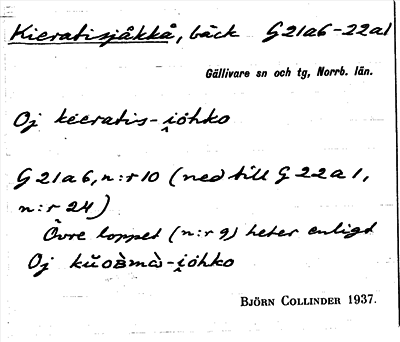 Kieratisjåkkå, bäck G21a6-22a1
Gällivare sn och tg, Norrb. län.
Oj kieratis-i̯öhko
G21a6, n:r10 (ned till G22a1,
n:r 24)
Övre loppet (n:r 9) heter enligt
Oj kŭoὰmὰ-i̯öhko
BJÖRN COLLINDER 1937.